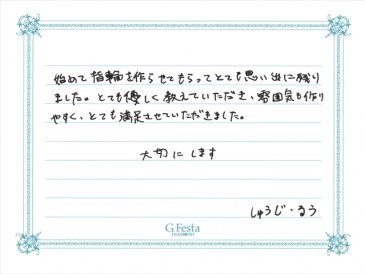 始めて指輪を作らせてもらってとても思い出に残り
ました。とても優しく教えていただき、雰囲気も作り
やすく、とても満足させていただきました。
大切にします
しゅうじ・るう
G.Festa